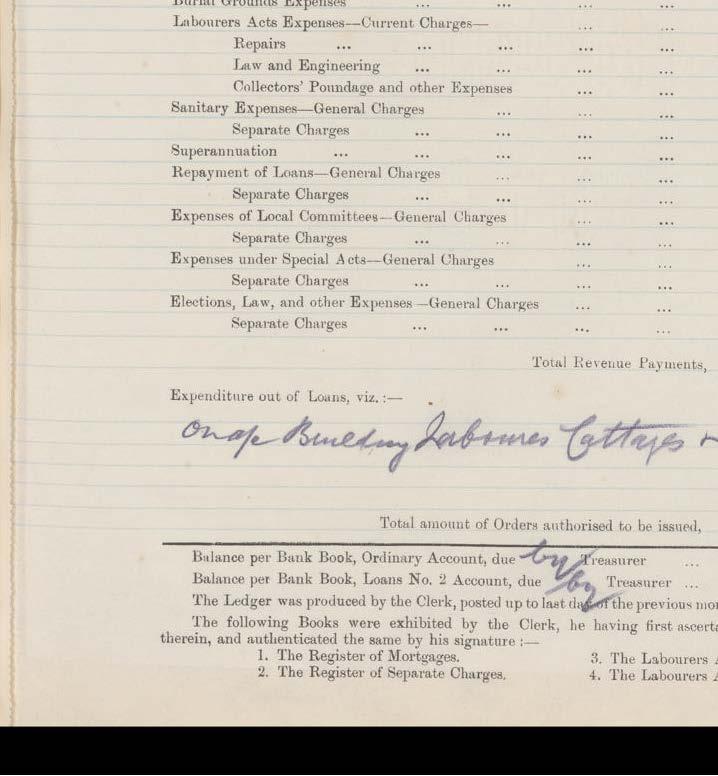 Burial Grounds Expenses ... ... ... ...
Labourers Acts Expenses—Current Charges— ... ...
Repairs ... ... ... ... ...
Law and Engineering ... ... ... ...
Collectors' Poundage and other Expenses ... ...
Sanitary Expenses—General Charges ... ... ...
Separate Charges ... ... ... ...
Superannuation ... ... ... ... ...
Repayment of Loans—General Charges ... ... ...
Separate Charges ... ... ... ...
Expenses of Local Committees—General Charges ... ...
Separate Charges ... ... ... ...
Expenses under Special Acts—General Charges ... ...
Separate Charges ... ... ... ...
Elections, Law, and other Expenses—General Charges ... ...
Separate Charges ... ... ... ...
Total Revenue Payments,
Expenditure out of Loans, viz.:—
Building Laboures Cottages
Total amount of Orders authorised to be issued,
Balance per Bank Book, Ordinary Account, due by Treasurer ...
Balance per Bank Book, Loans No. 2 Account, due by Treasurer ...
The Ledger was produced by the Clerk, posted up to last day of the previous mon
The following Books were exhibited by the Clerk, he having first ascerta
therein, and authenticated the same by his signature:—
1. The Register of Mortgages. 3. The Labourers A
2. The Register of Separate Charges. 4. The Labourers A